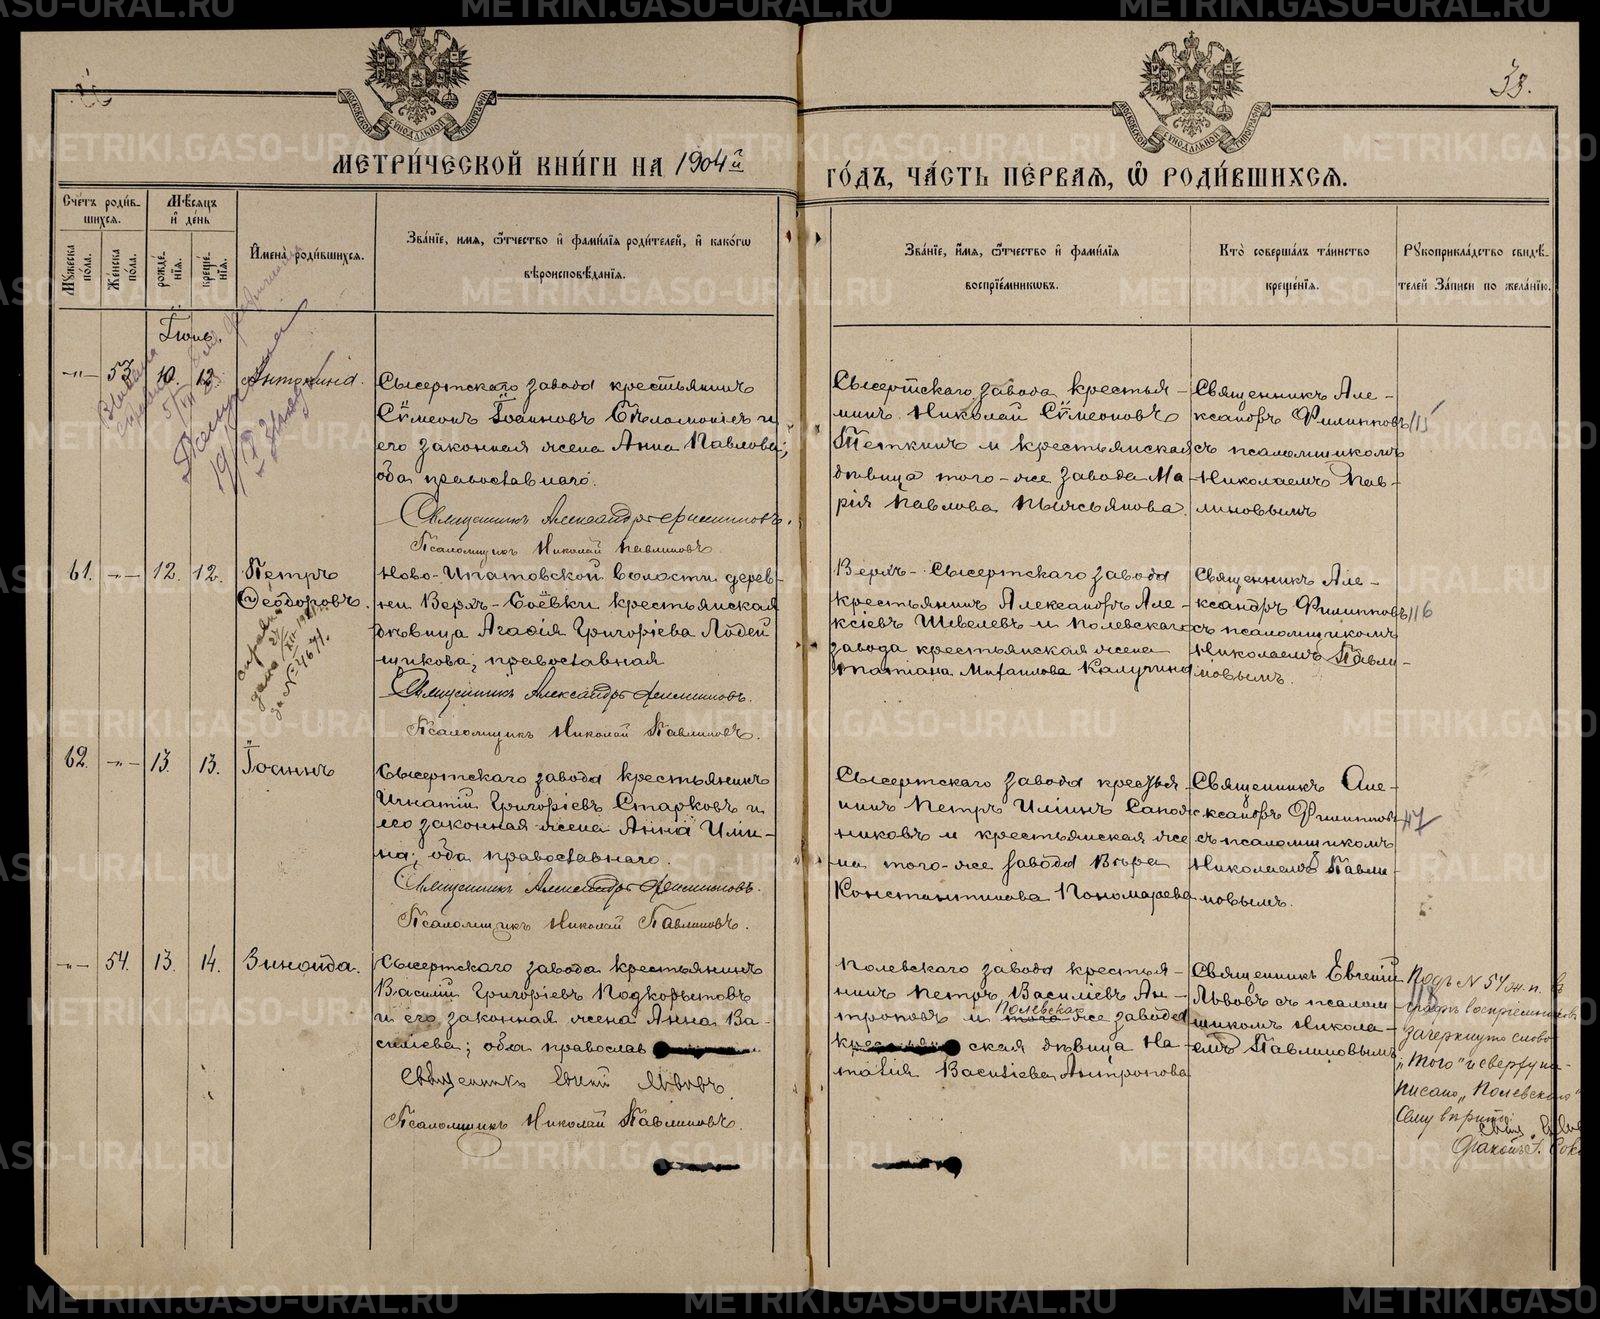 МЕТРИ́ЧЕСКОЙ КНИ́ГИ НА 1904й
ГО́ДЪ, ЧА́СТЬ ПЕ́РВАЯ, Ѡ РОДИ́ВШИХСЯ.
33.
Сче́тъ роди́в-
шихся.
Мѣ́сяцъ
и҆ де́нь
Му́жеска по́ла.
Же́нска по́ла.
рожде́-
нїя.
креще́-
нїя.
И҆мена̀ роди́вшихся.
Зва́нїе, имя, ѻ҆́тчество и҆ фами́лїя роди́телей, и҆ како́гѡ
вѣроисповѣ́данїя.
Зва́нїе, и҆́мя, ѻ҆́тчество и҆ фами́лїя
воспрїе́мникωвъ.
Кто̀ соверша́лъ та́инство
креще́нїя.
Рꙋкоприкла́дство свидѣ́-
телей За́писи по жела́нїю.
Іюнь.
-„- 53 10. 12. Антонина.
Сысертскаго завода крестьянинъ
Сѵмеонъ Іоанновъ Бѣломоинъ и
его законная жена Анна Павлова;
оба православнаго.
Священникъ Александръ Филипповъ.
Псаломщикъ Николай Павлиновъ.
Сысертскаго завода крестья-
нинъ Николай Сѵмеоновъ
Теткинъ и крестьянская
дѣвица того-же завода Ма-
рія Павлова
Священникъ Але-
ксандръ Филипповъ
съ псаломщикомъ
Николаемъ Пав-
линовымъ
115
61. -„- 12. 12. Петръ
Ѳеодоровъ.
справка
дана
за №
Ново-Ипатовской волости дерев-
ни Верхъ-Боёвки крестьянская
дѣвица Агафія Григоріева Лодей
щикова, православная
Священникъ Александръ Филипповъ.
Псаломщикъ Николай Павлиновъ.
Верхъ-Сысертскаго завода
крестьянинъ Александръ Але-
ксіевъ Шевелевъ и Полевскаго
завода крестьянская жена
Татіана Михаилова Калугина
Священникъ Але-
ксандръ Филипповъ
съ псаломщикомъ
Николаемъ Павли-
новымъ.
116
62. -„- 13. 13. Іоаннъ
Сысертскаго завода крестьянинъ
Игнатій Григоріевъ Старковъ и
его законная жена Анна Или-
на; оба православнаго.
Священникъ Александръ Филипповъ.
Псаломщикъ Николай Павлиновъ.
Сысертскаго завода крестья
нинъ Петръ Иліинъ Сапож
никовъ и крестьянская же
на того-же завода Вѣра
Константинова Пономарева
Священникъ Але-
ксандръ Филипповъ
съ псаломщикомъ
Николаемъ Павли-
новымъ.
117
-„- 54. 13. 14. Зинаида.
Сысертскаго завода крестьянинъ
Василій Григоріевъ Подкорытовъ
и его законная жена Анна Ва-
силіева; оба православ
Священникъ Евгеній Львовъ.
Псаломщикъ Николай Павлиновъ.
Полевского завода крестья-
нинъ Петръ Василіевъ Ан-
Полевскаго
троповъ и того же завода
ская дѣвица На-
талія Василіева Антропова
Священникъ Евгеній
Львовъ съ псалом
щикомъ Никола-
емъ Павлиновымъ
118
Подъ № 54 ж. п. въ
графѣ воспріемниковъ
зачеркнуто слово
„того" и сверху на-
писано „Полевскаго"